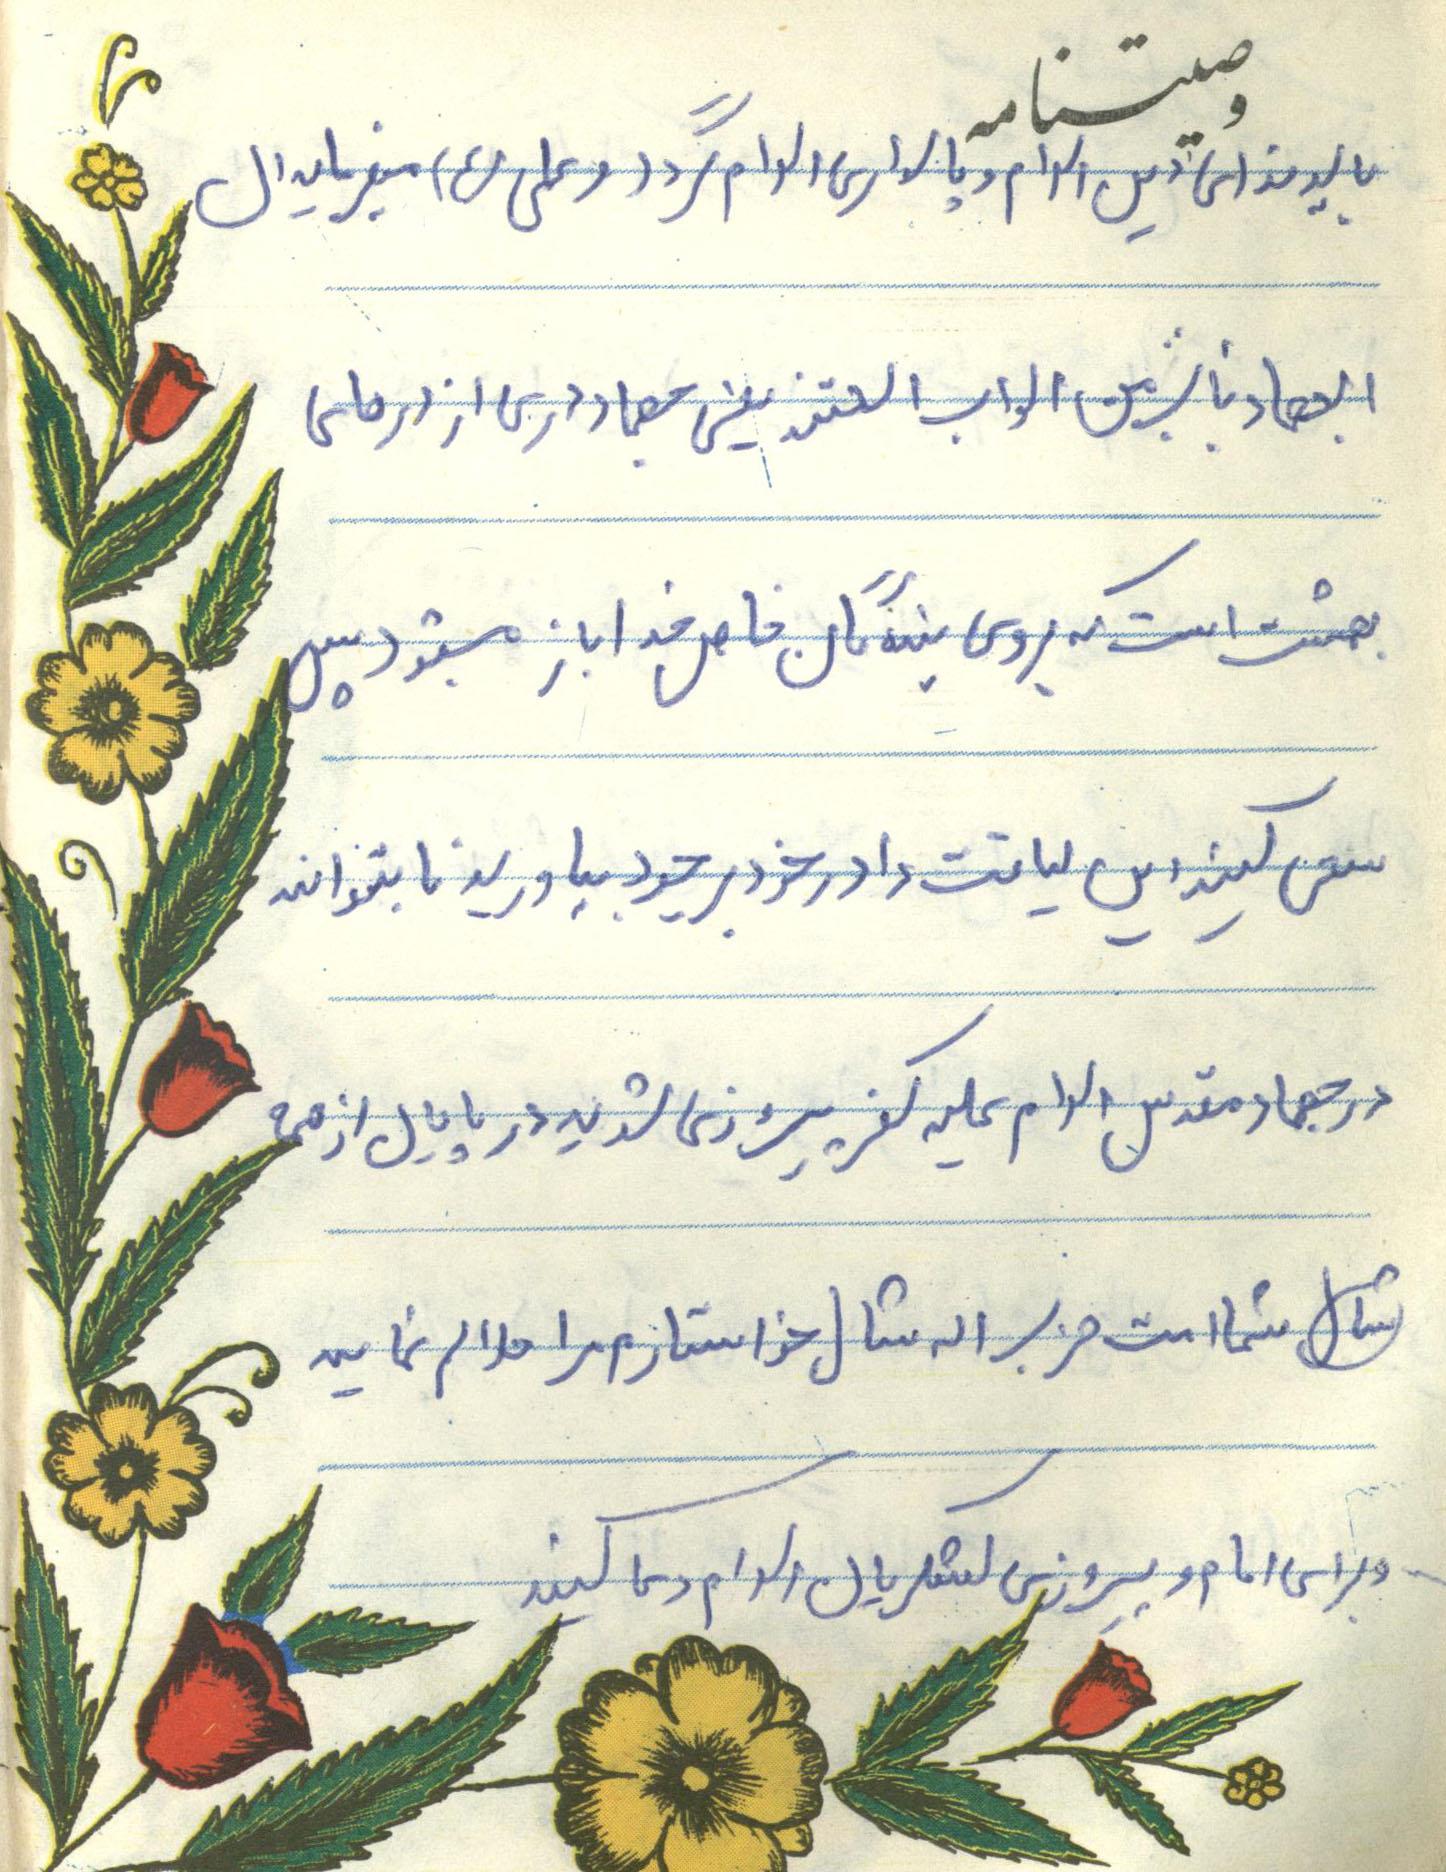 وصیتنامه
باید فدای دین اسلام و پاسداری اسلام گردد و علی (ع) میفرماید ان
الجهاد باب من ابواب الجنته یعنی جهاد دری از درهای
بهشت است که بروی بندگان خاص خدا باز میشود پس
سعی کنید این لیاقت را در خود بوجود بیاورید تا بتوانید
در جهاد مقدس اسلام علیه کفر پیروز شوید در پایان از همه
شما امت حزب اله خواستارم مرا حلال نمایید
و برای امام و پیروزی لشکریان اسلام دعا کنید